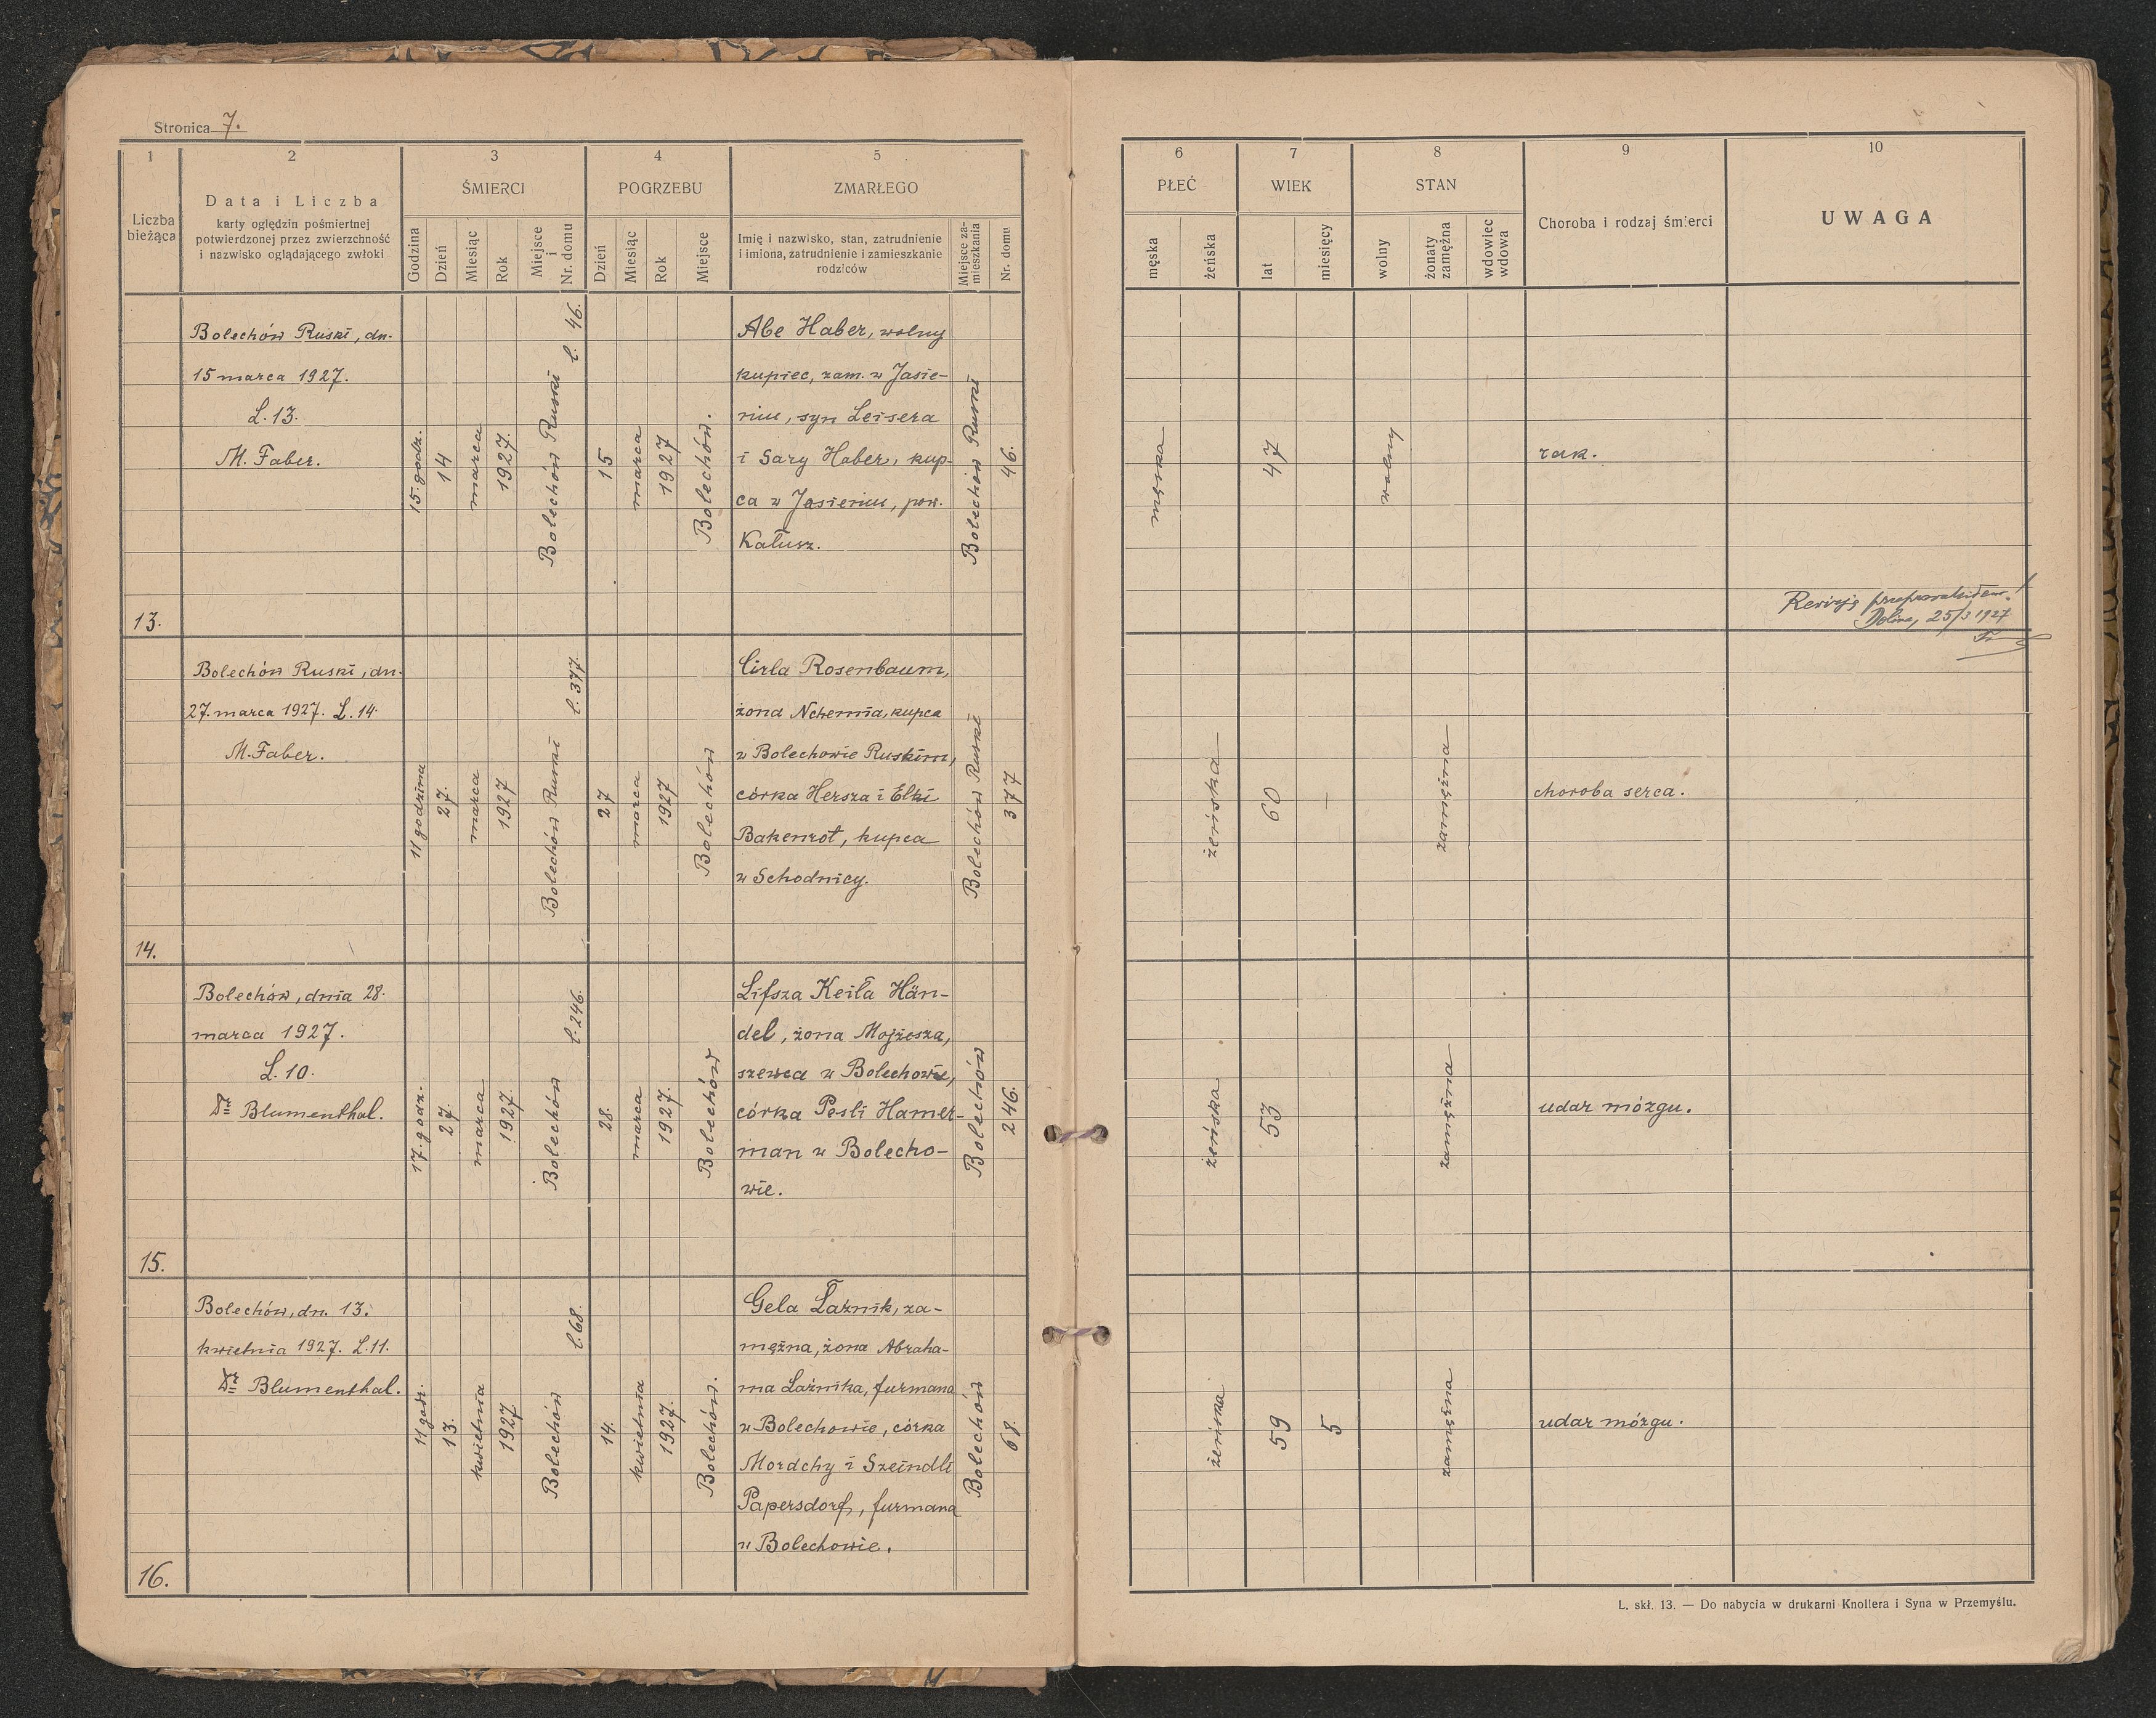 Stronica 7.
1
2
3
4
5
Liczba bieżąca
Data i Liczba
karty oględzin pośmiertnej
potwierdzonej przez zwierzchność
i nazwisko oglądającego zwłoki
ŚMIERCI
Godzina
Dzień
Miesiąc
Rok
Miejsce i Nr. domu
POGRZEBU
Dzień
Miesiąc
Rok
Miejsce
ZMARŁEGO
Imię i nazwisko, stan, zatrudnienie
i imiona, zatrudnienie i zamieszkanie
rodziców
Miejsce za-
mieszkania
Nr. domu
6
7
8
9
10
PŁEĆ
męska
żeńska
WIEK
lat
miesięcy
STAN
wolny
żonaty
zamężna
wdowiec
wdowa
Choroba i rodzaj śmierci
UWAGA
13.
Bolechów Ruski, dn.
15 marca 1927.
L. 13.
M. Faber.
15. godz.
14
marca
1927.
Bolechów Ruski l. 46.
15
marca
1927
Bolechów.
Abe Haber, wolny
kupiec, zam. w Jasie-
niu, syn Leisera
i Sary Haber, kup-
ca w Jasieniu, pow.
Kałusz.
Bolechów Ruski
46.
męska
47
wolny
rak.
Rewizję
Dolina, 25/3 1927
14.
Bolechów Ruski, dn.
27. marca 1927. L. 14.
M. Faber.
11 godzina
27.
marca
1927
Bolechów Ruski l. 377.
27
marca
1927
Bolechów
Cirla Rosenbaum,
żona Nchemia, kupca
w Bolechowie Ruskim,
córka Hersza i Elki
Bakenrot, kupca
w Schodnicy.
Bolechów Ruski
377
żeńska
60
—
zamężna
choroba serca.
15.
Bolechów, dnia 28.
marca 1927.
L. 10.
Dr Blumenthal.
17. godz.
27.
marca
1927.
Bolechów l. 246.
28.
marca
1927.
Bolechów
Lifsza Keiła Hän-
del, żona Mojżesza,
szewca w Bolechowie,
córka Pesli Hamer-
man w Bolecho-
wie.
Bolechów
246.
żeńska
53
zamężna
udar mózgu.
16.
Bolechów, dn. 13.
kwietnia 1927. L. 11.
Dr Blumenthal.
11 godz.
13.
kwietnia
1927
Bolechów l. 68.
14.
kwietnia
1927.
Bolechów.
Gela Łaźnik, za-
mężna, żona Abraha-
ma Łaźnika, furmana
w Bolechowie, córka
Mordchy i Szeindli
Papersdorf, furmana
w Bolechowie.
Bolechów
68.
żeńska
59
5
zamężna
udar mózgu.
L. skł. 13. — Do nabycia w drukarni Knollera i Syna w Przemyślu.